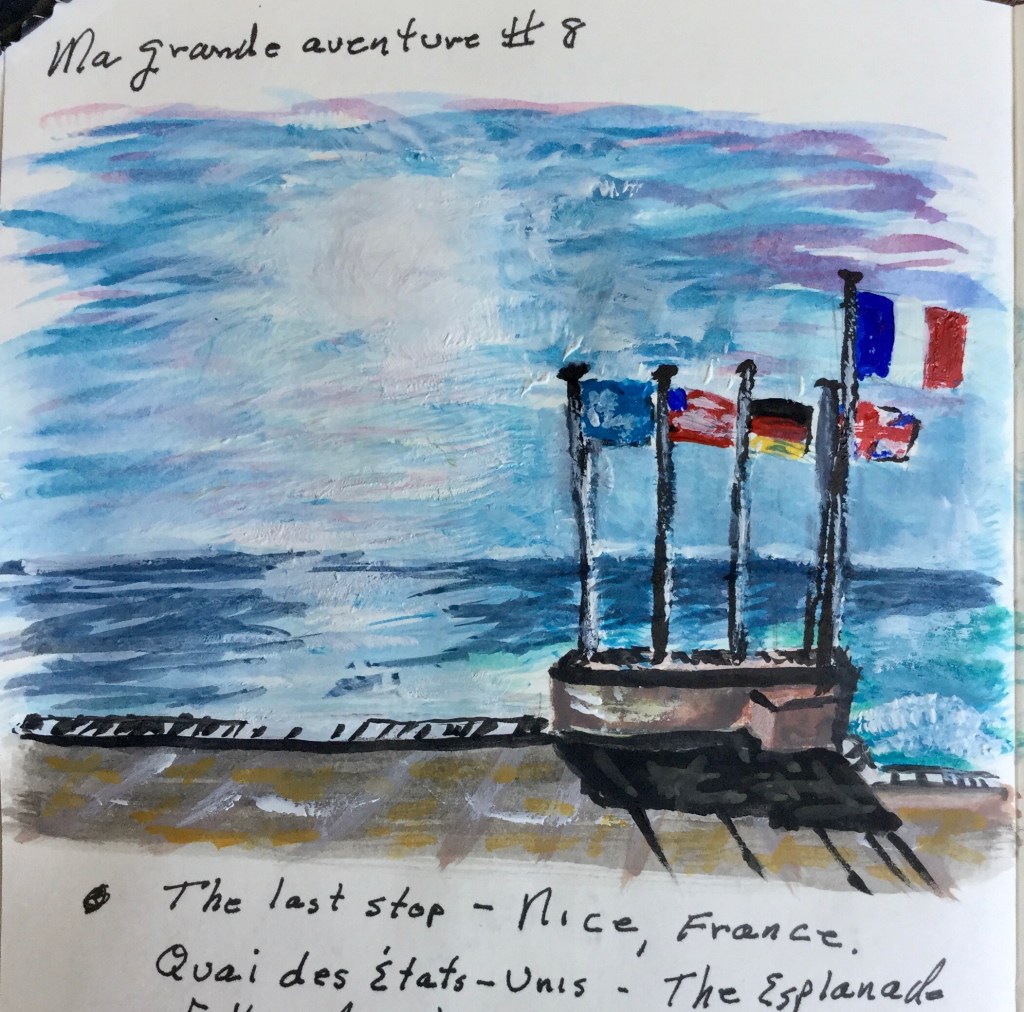 Ma grande aventure # 8
The last stop - Nice, France.
Quai des États-Unis - The Esplanade